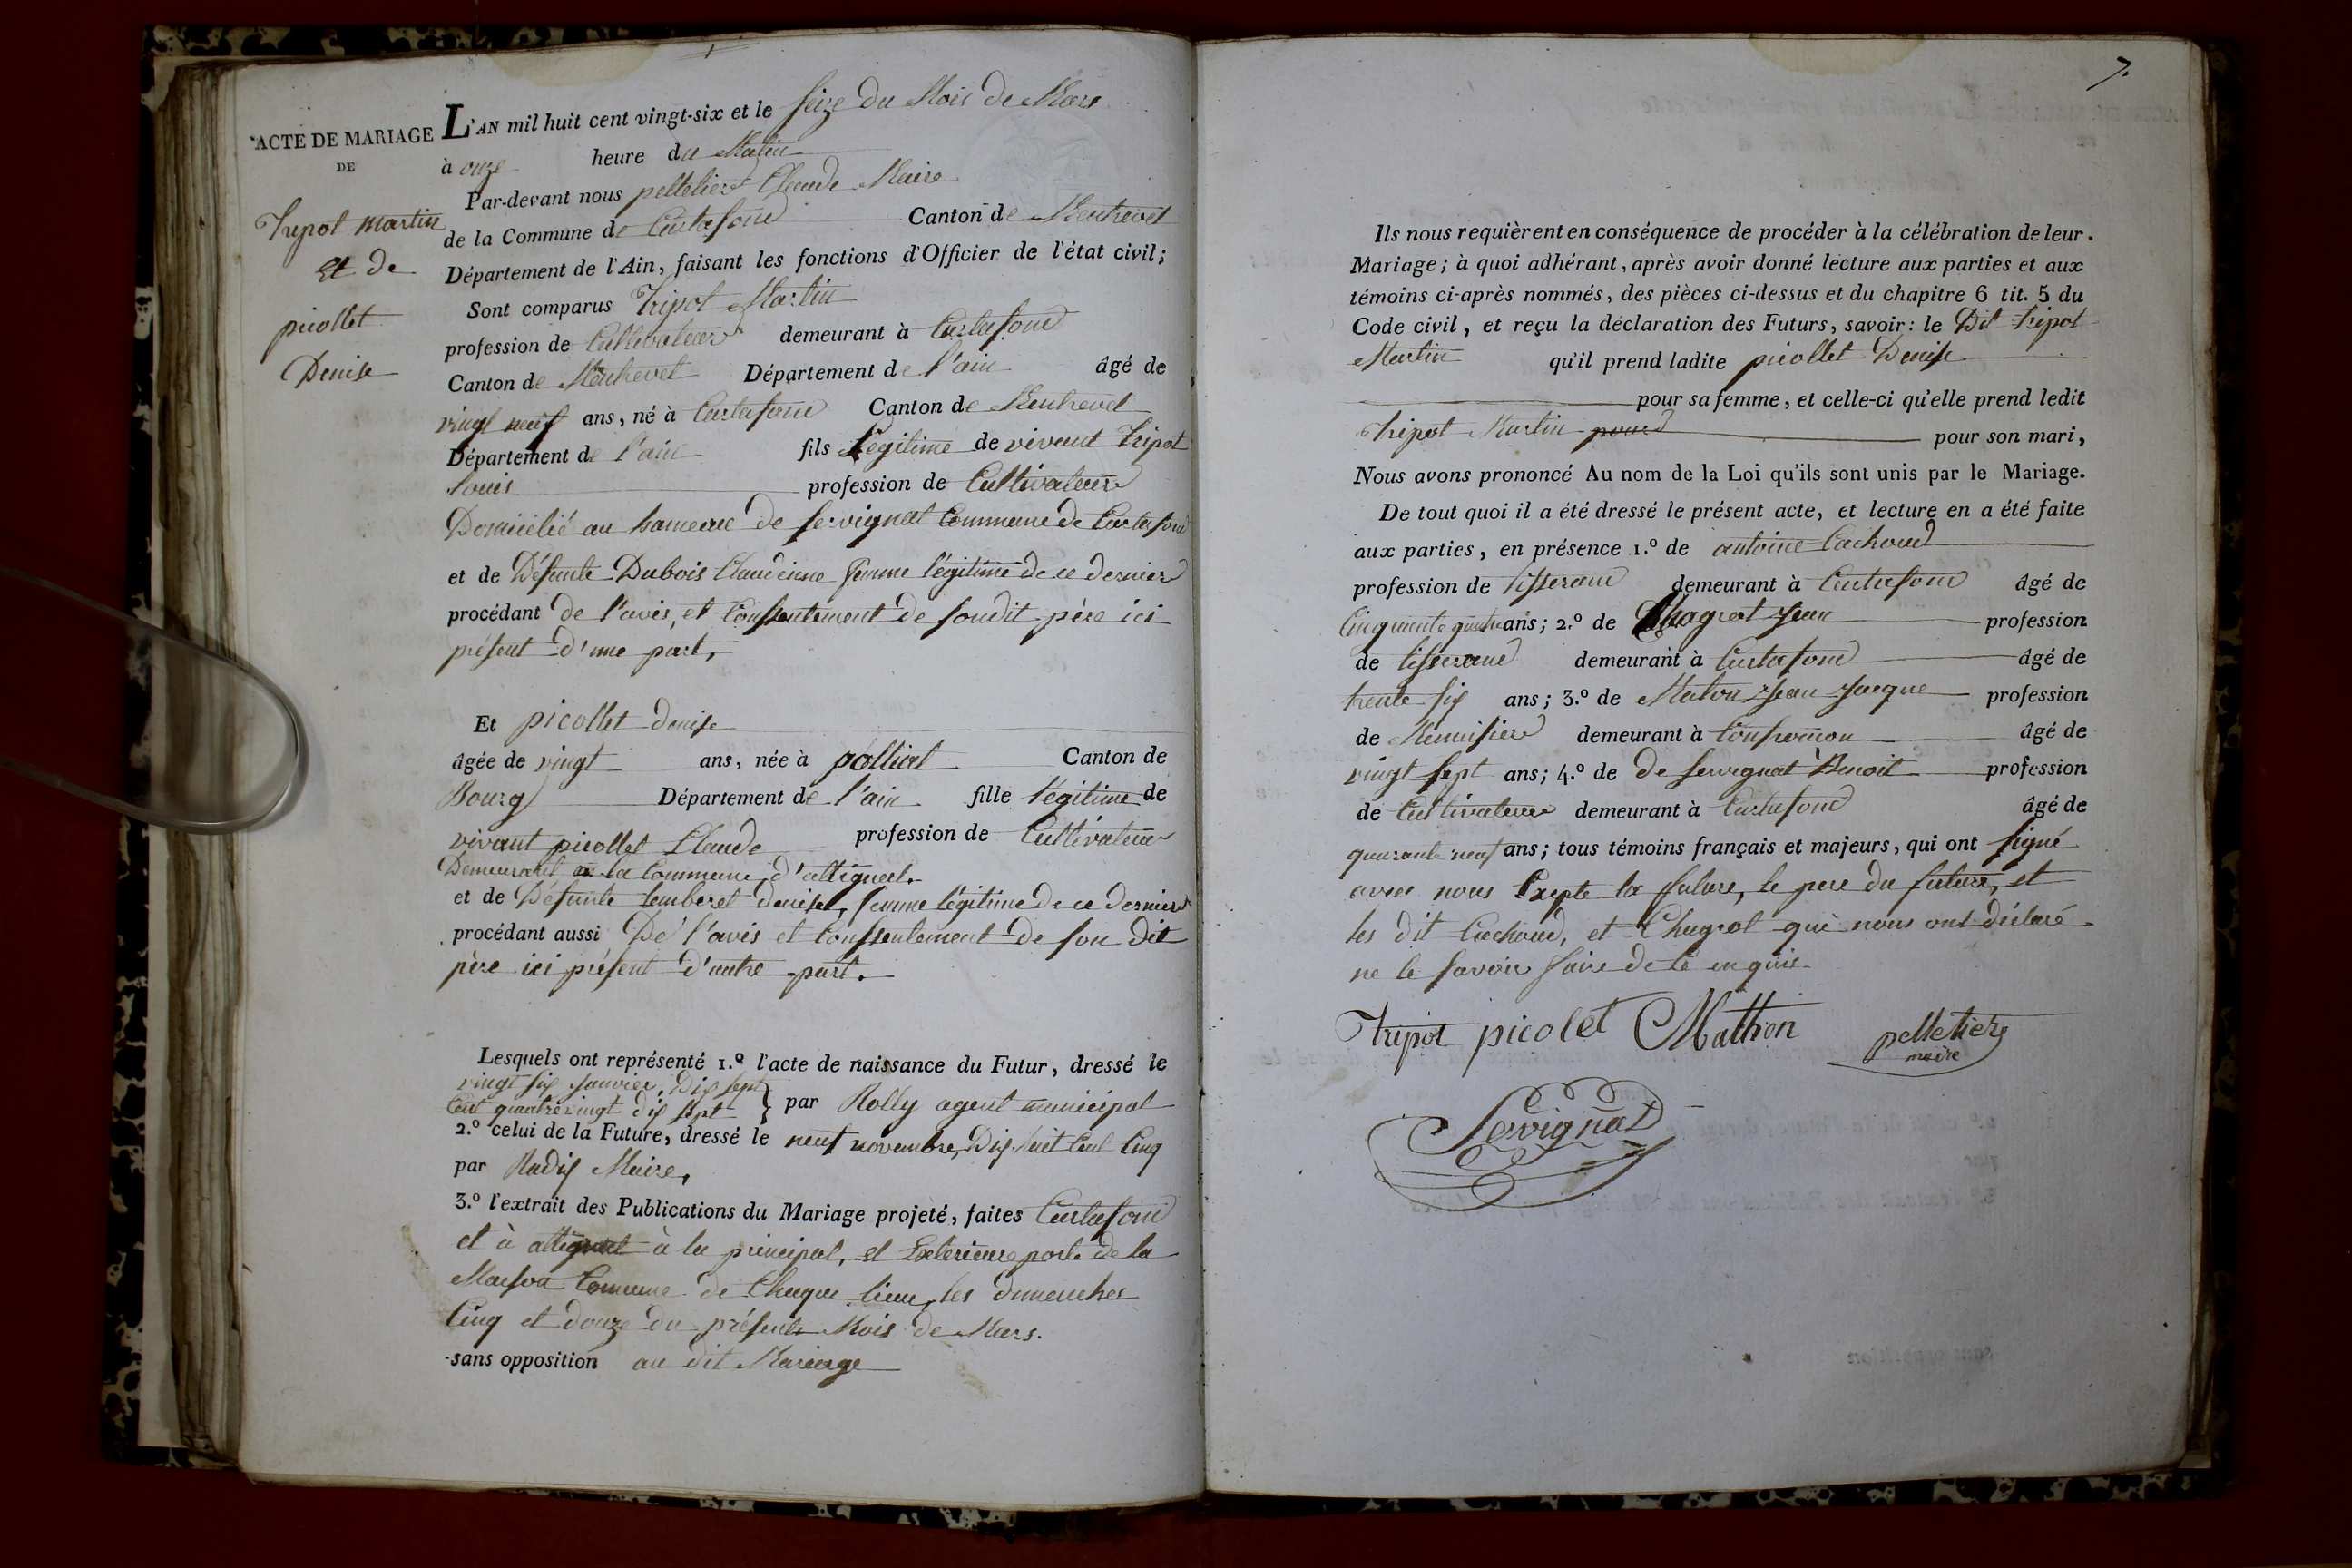 ACTE DE MARIAGE
DE
Tripot martin
Et de
picollet
Denise
L'AN mil huit cent vingt-six et le seize du Mois de Mars
à onze heure du Matin
Par-devant nous pelletier Claude Maire
de la Commune de Curtafond Canton de Montrevel
Département de l'Ain, faisant les fonctions d'Officier de l'état civil;
Sont comparus Tripot Martin
profession de Cultivateur demeurant à Curtafond
Canton de Montrevel Département de l'ain âgé de
vingt neuf ans, né à Curtafond Canton de Montrevel
Département de l'ain fils légitime de vivant Tripot
Louis profession de Cultivateur
Domicilié au hameau de servignat Commune de Curtafond
et de Défunte Dubois Claudine femme légitime de ce dernier
procédant de l'avis, et Consentement de soudit père ici
présent d'une part,
Et picollet denise
âgée de vingt ans, née à polliat Canton de
Bourg Département de l'ain fille légitime de
vivant picollet Claude profession de Cultivateur
Demeurant la Commune d'attignat.
et de Défunte denise, femme légitime de ce dernier
procédant aussi De l'avis et Consentement de son dit
père ici présent d'autre part.
Lesquels ont représenté 1.º l'acte de naissance du Futur, dressé le
vingt six Janvier, Dix sept
Cent quatrevingt dix sept } par Rolly agent municipal
2.º celui de la Future, dressé le neuf novembre, Dix huit Cent Cinq
par Radix Maire,
3.º l'extrait des Publications du Mariage projeté, faites Curtafond
et à attignat à la principal, et Exterieure porte de la
Maison Commune de Chaque lieu, les dimenches
Cinq et douze du présent Mois de Mars.
sans opposition au dit Mariage
7.
Ils nous requièrent en conséquence de procéder à la célébration de leur
Mariage; à quoi adhérant, après avoir donné lecture aux parties et aux
témoins ci-après nommés, des pièces ci-dessus et du chapitre 6 tit. 5 du
Code civil, et reçu la déclaration des Futurs, savoir: le Dit Tripot
Martin qu'il prend ladite picollet Denise
pour sa femme, et celle-ci qu'elle prend ledit
Tripot Martin pour son mari,
Nous avons prononcé Au nom de la Loi qu'ils sont unis par le Mariage.
De tout quoi il a été dressé le présent acte, et lecture en a été faite
aux parties, en présence 1.º de antoine Cachoud
profession de tisserand demeurant à Curtafond âgé de
Cinquante quatre ans; 2.º de Chagrot Jean profession
de tisserand demeurant à Curtafond âgé de
trente six ans; 3.º de Maton Jean Jacque profession
de Menuisier demeurant à Confrançon âgé de
vingt sept ans; 4.º de De servignat Benoit profession
de Cultivateur demeurant à Curtafond âgé de
quarante neuf ans; tous témoins français et majeurs, qui ont signé
avec nous Excepte la future, le pere du future, et
les dit Cachoud, et Chagrot qui nous ont déclaré
ne le savoir faire de ce enquis
Tripot picolet Mathon pelletier
maire
Servignat